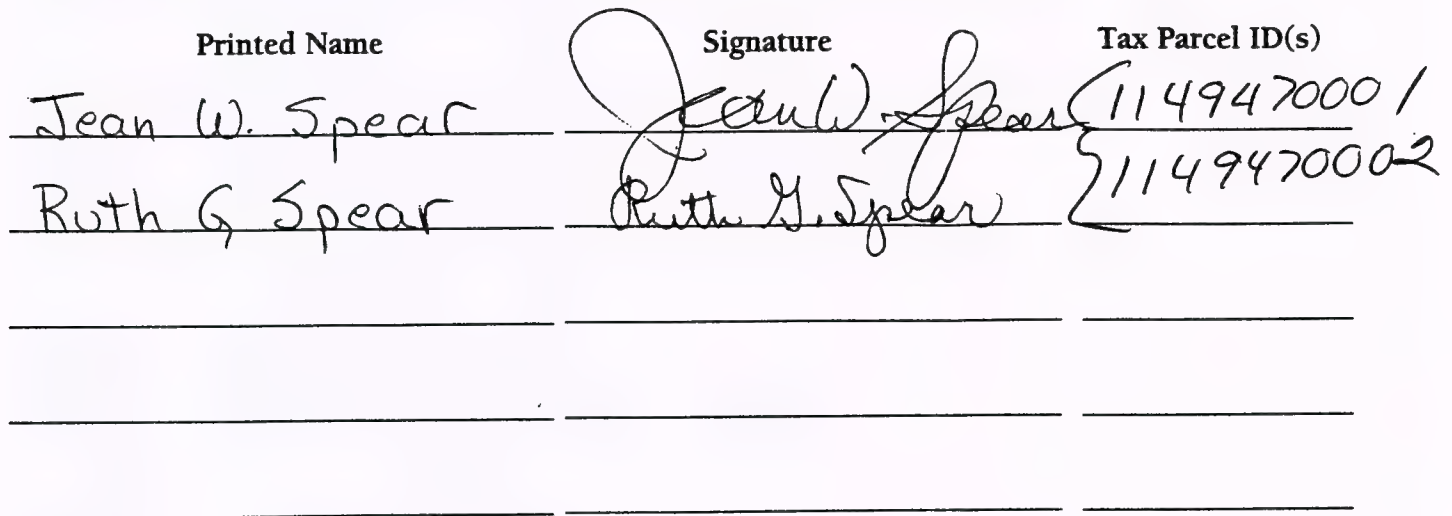 Printed Name Signature Tax Parcel ID(s)
Jean W. Spear Jean W. Spear 1149470001
Ruth G Spear Ruth G. Spear 1149470002